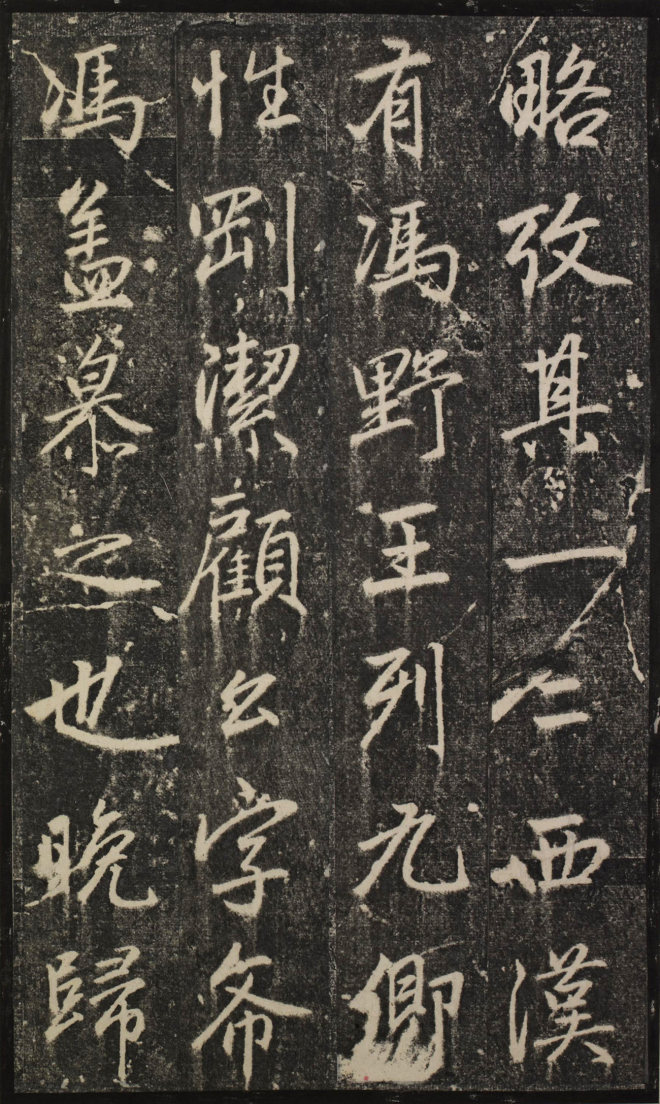 略攷其一二西漢
有馮野王列九卿
性剛潔顧公字希
馮盖慕之也晚歸